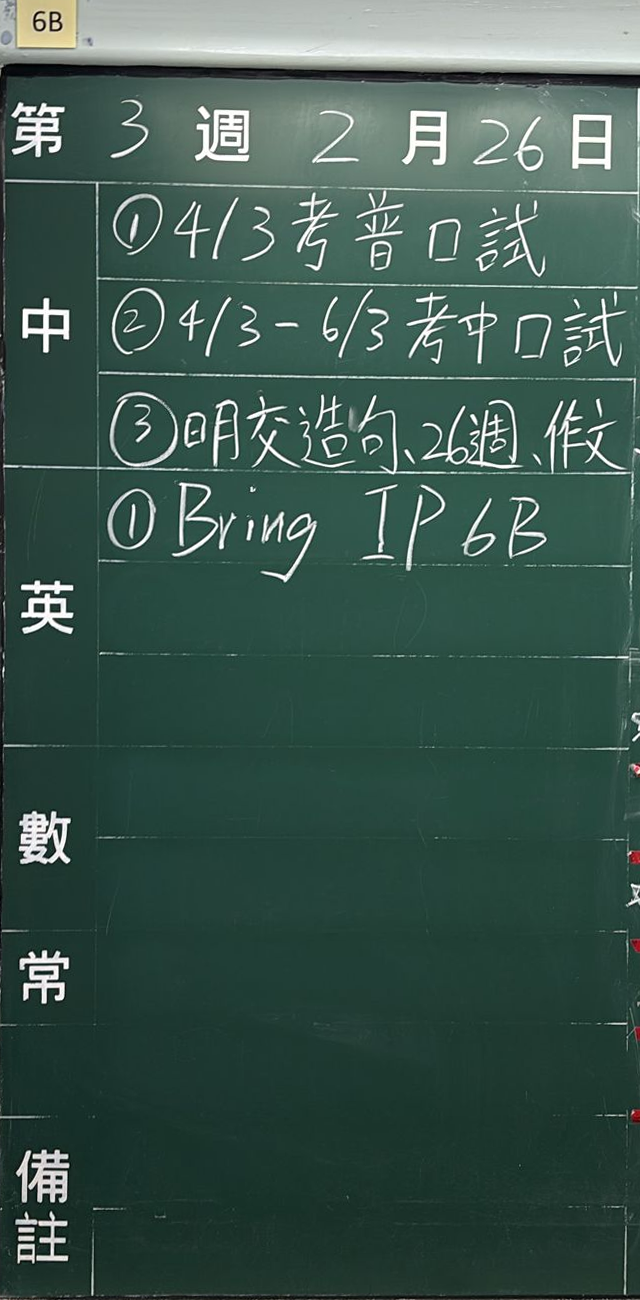 6B
第 3 週 2 月 26 日
中
①4/3考普口試
②4/3-6/3考中口試
③明交造句、26週、作文
英
①Bring IP 6B
數
常
備註